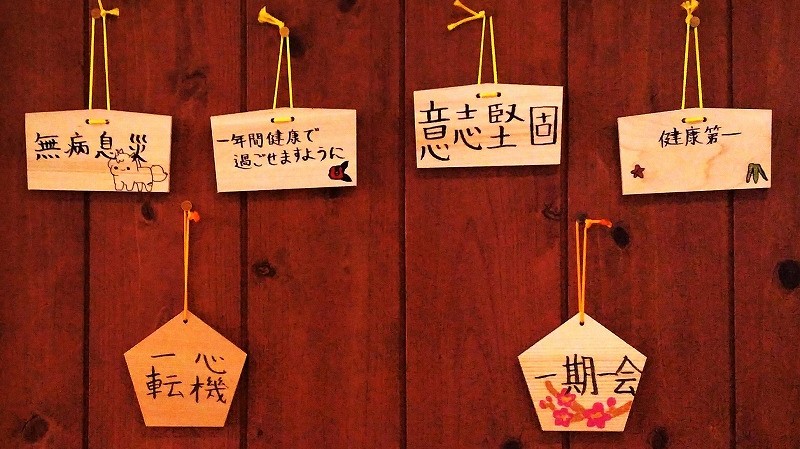 無病息災
一年間健康で
過ごせますように
意志堅固
健康第一
心機
一転
一期一会